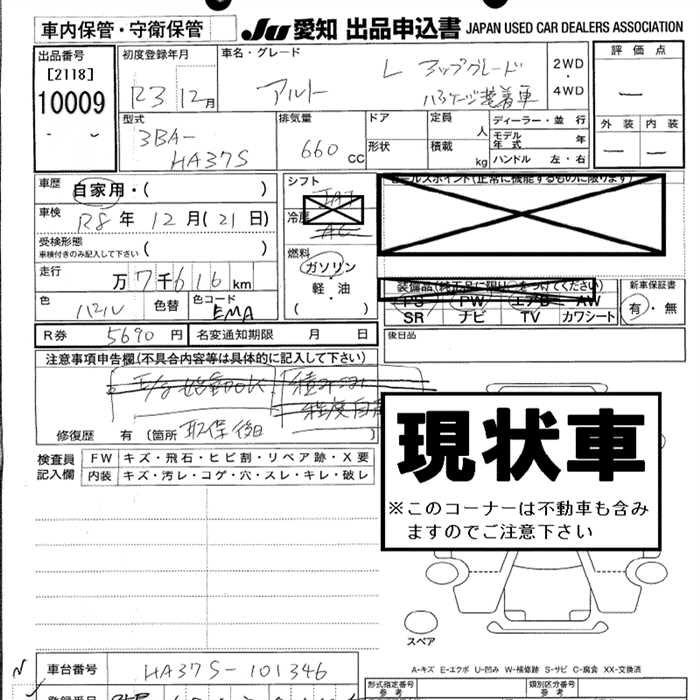 車内保管・守衛保管
JU 愛知 出品申込書 JAPAN USED CAR DEALERS ASSOCIATION
出品番号
[2118]
10009
初度登録年月
R3 12月
車名・グレード
アルト L アップグレード
パッケージ装着車
2WD
・
4WD
評価点
外装 内装
型式
3BA-
HA37S
排気量
660 CC
ドア
形状
定員 人
積載 kg
ディーラー・並行
モデル年式 年
ハンドル 左・右
車歴 自家用・( )
車検 R8年 12月(21日)
受検形態
車検付きのみ記入して下さい ( )
走行 万 7千616 km
色 パール 色替 色コード EMA
R券 5690円 名変通知期限 月 日
シフト
冷房
AC
燃料
ガソリン
・
軽・油
( )
セールスポイント(正常に機能するものに限ります)
装備品(純正品に限り○をつけてください)
PS PW エアB AW
SR ナビ TV カワシート
新車保証書
有・無
後日品
注意事項申告欄(不具合内容等は具体的に記入して下さい)
修復歴 有 (箇所 取保後日 )
検査員記入欄
FW キズ・飛石・ヒビ割・リペア跡・X要
内装 キズ・汚レ・コゲ・穴・スレ・キレ・破レ
現状車
※このコーナーは不動車も含み
ますのでご注意下さい
スペア
A-キズ E-エクボ U-凹み W-補修跡 S-サビ C-腐食 XX-交換済
車台番号 HA37S-101346
登録番号
形式指定番号
参考
類別区分番号
参考